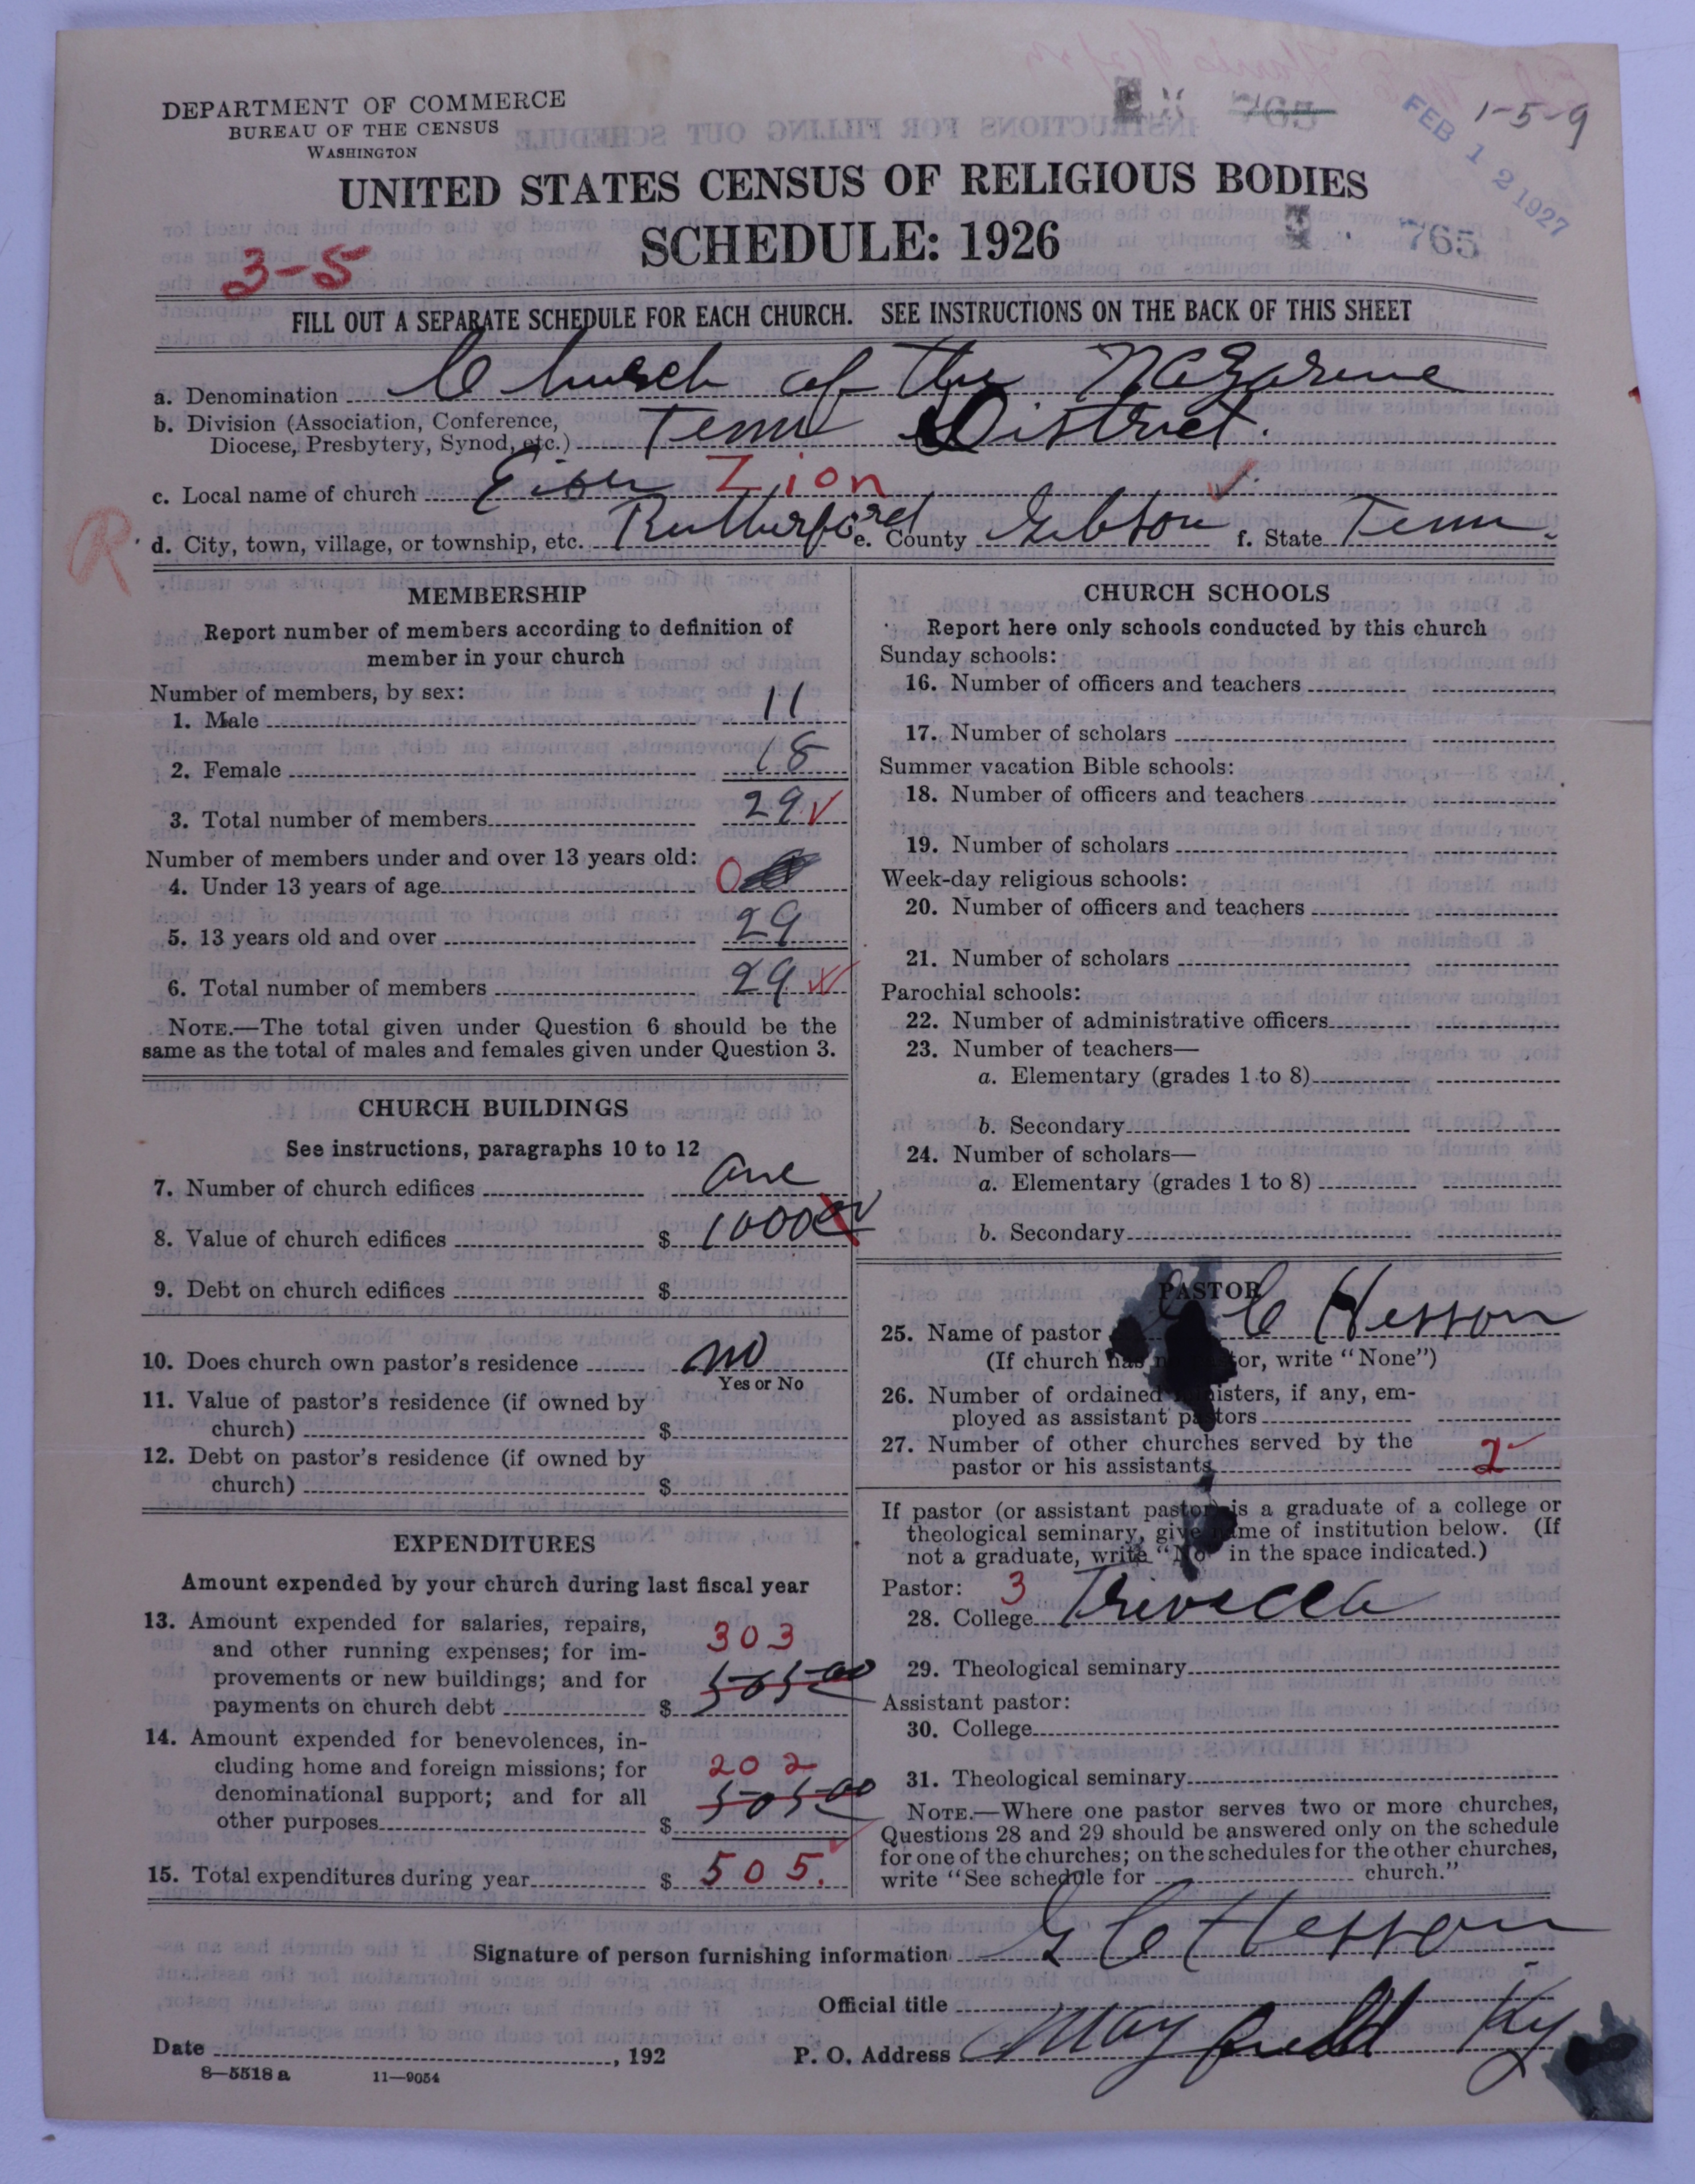 DEPARTMENT OF COMMERCE
BUREAU OF THE CENSUS
WASHINGTON
1-5-9
FEB 12 1927
765
UNITED STATES CENSUS OF RELIGIOUS BODIES
SCHEDULE: 1926
765
3-5
FILL OUT A SEPARATE SCHEDULE FOR EACH CHURCH. SEE INSTRUCTIONS ON THE BACK OF THIS SHEET
a. Denomination Church of the Nazarene
b. Division (Association, Conference, Diocese, Presbytery, Synod, etc.) Tenn District.
c. Local name of church Zion
R
d. City, town, village, or township, etc. Rutherford e. County Gibson f. State Tenn.
MEMBERSHIP
Report number of members according to definition of
member in your church
Number of members, by sex:
1. Male 11
2. Female 18
3. Total number of members 29
Number of members under and over 13 years old:
4. Under 13 years of age 0
5. 13 years old and over 29
6. Total number of members 29
NOTE.—The total given under Question 6 should be the
same as the total of males and females given under Question 3.
CHURCH BUILDINGS
See instructions, paragraphs 10 to 12
7. Number of church edifices one
8. Value of church edifices $ 1000
9. Debt on church edifices $
10. Does church own pastor's residence no
Yes or No
11. Value of pastor's residence (if owned by
church) $
12. Debt on pastor's residence (if owned by
church) $
EXPENDITURES
Amount expended by your church during last fiscal year
13. Amount expended for salaries, repairs,
and other running expenses; for im-
provements or new buildings; and for
payments on church debt $ 303 505.00
14. Amount expended for benevolences, in-
cluding home and foreign missions; for
denominational support; and for all
other purposes $ 202 505.00
15. Total expenditures during year $ 505.
CHURCH SCHOOLS
Report here only schools conducted by this church
Sunday schools:
16. Number of officers and teachers
17. Number of scholars
Summer vacation Bible schools:
18. Number of officers and teachers
19. Number of scholars
Week-day religious schools:
20. Number of officers and teachers
21. Number of scholars
Parochial schools:
22. Number of administrative officers
23. Number of teachers—
a. Elementary (grades 1 to 8)
b. Secondary
24. Number of scholars—
a. Elementary (grades 1 to 8)
b. Secondary
PASTOR
25. Name of pastor C Hesson
(If church has no pastor, write "None")
26. Number of ordained ministers, if any, em-
ployed as assistant pastors
27. Number of other churches served by the
pastor or his assistants 2
If pastor (or assistant pastor) is a graduate of a college or
theological seminary, give name of institution below. (If
not a graduate, write "No" in the space indicated.)
Pastor: 3
28. College Trevecca
29. Theological seminary
Assistant pastor:
30. College
31. Theological seminary
NOTE.—Where one pastor serves two or more churches,
Questions 28 and 29 should be answered only on the schedule
for one of the churches; on the schedules for the other churches,
write "See schedule for church."
Signature of person furnishing information G C Hesson
Official title
Date , 192
P. O. Address Mayfield Ky
8—5518 a 11—9054